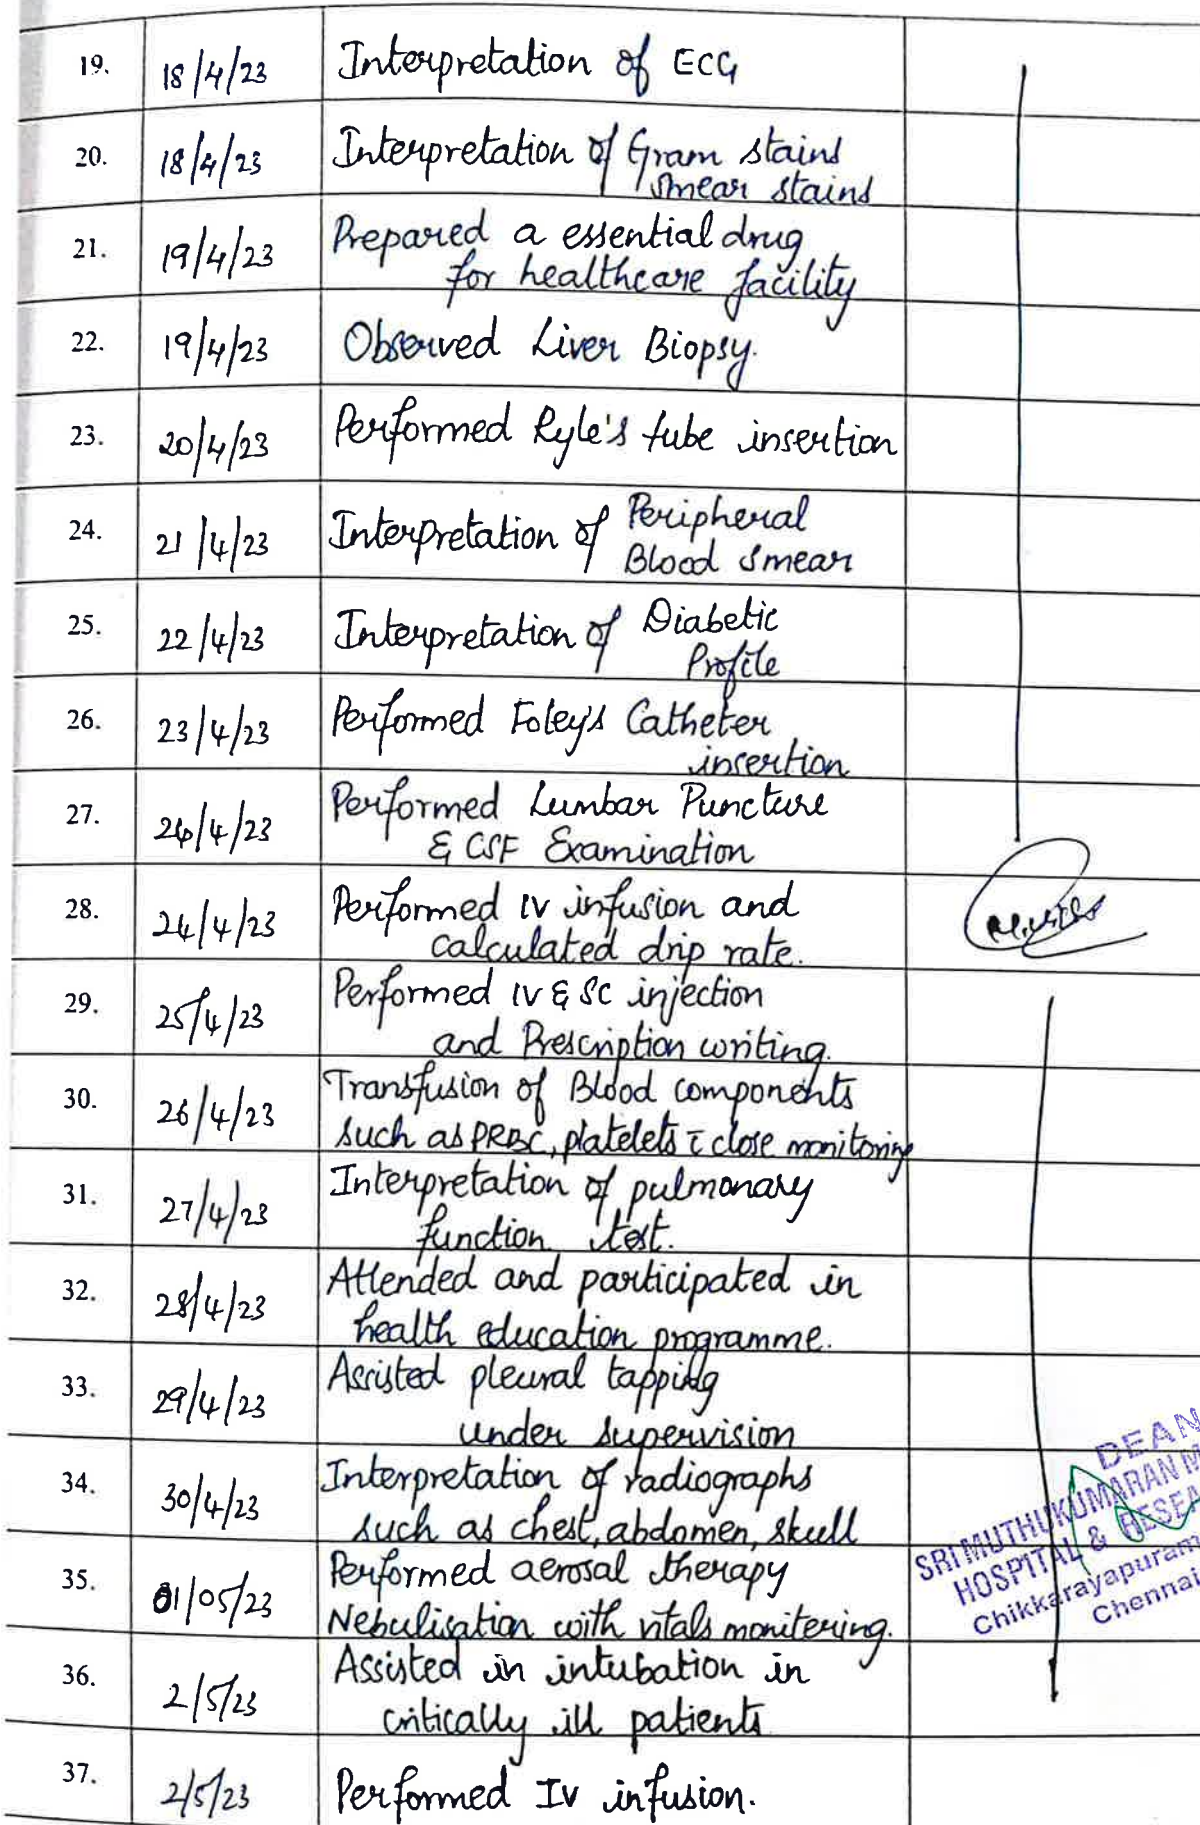 19. 18/4/23 Interpretation of ECG
20. 18/4/23 Interpretation of Gram stains
smear stains
21. 19/4/23 Prepared a essential drug
for healthcare facility
22. 19/4/23 Observed Liver Biopsy.
23. 20/4/23 Performed Ryle's tube insertion
24. 21/4/23 Interpretation of Peripheral
Blood smear
25. 22/4/23 Interpretation of Diabetic
Profile
26. 23/4/23 Performed Foley's Catheter
insertion
27. 24/4/23 Performed Lumbar Puncture
& CSF Examination
28. 24/4/23 Performed IV infusion and
calculated drip rate.
29. 25/4/23 Performed IV & SC injection
and Prescription writing.
30. 26/4/23 Transfusion of Blood components
such as PRBC, platelets c̄ close monitoring
31. 27/4/23 Interpretation of pulmonary
function test.
32. 28/4/23 Attended and participated in
health education programme.
33. 29/4/23 Assisted pleural tapping
under supervision
34. 30/4/23 Interpretation of radiographs
such as chest, abdomen, skull
35. 01/05/23 Performed aerosal therapy
Nebulisation with vitals monitering.
36. 2/5/23 Assisted in intubation in
critically ill patients
37. 2/5/23 Performed IV infusion.
DEAN
SRI MUTHUKUMARAN M
HOSPITAL & RESEA
Chikkarayapuram
Chennai